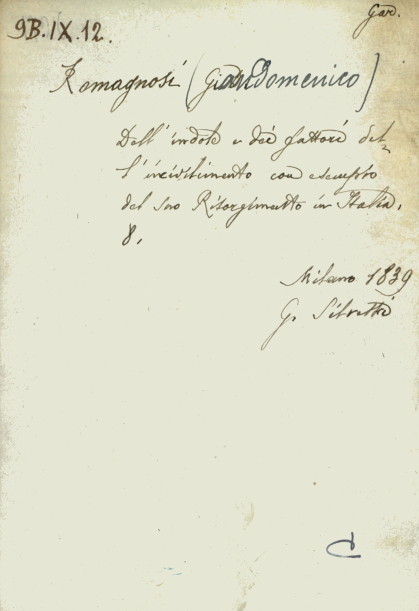 Gar.
9B.IX.12.
Romagnosi (Giandomenico)
Dell' indole e dei fattori del-
l' incivilimento con esempio
del suo Risorgimento in Italia.
8.
Milano 1839
G. Silvestri